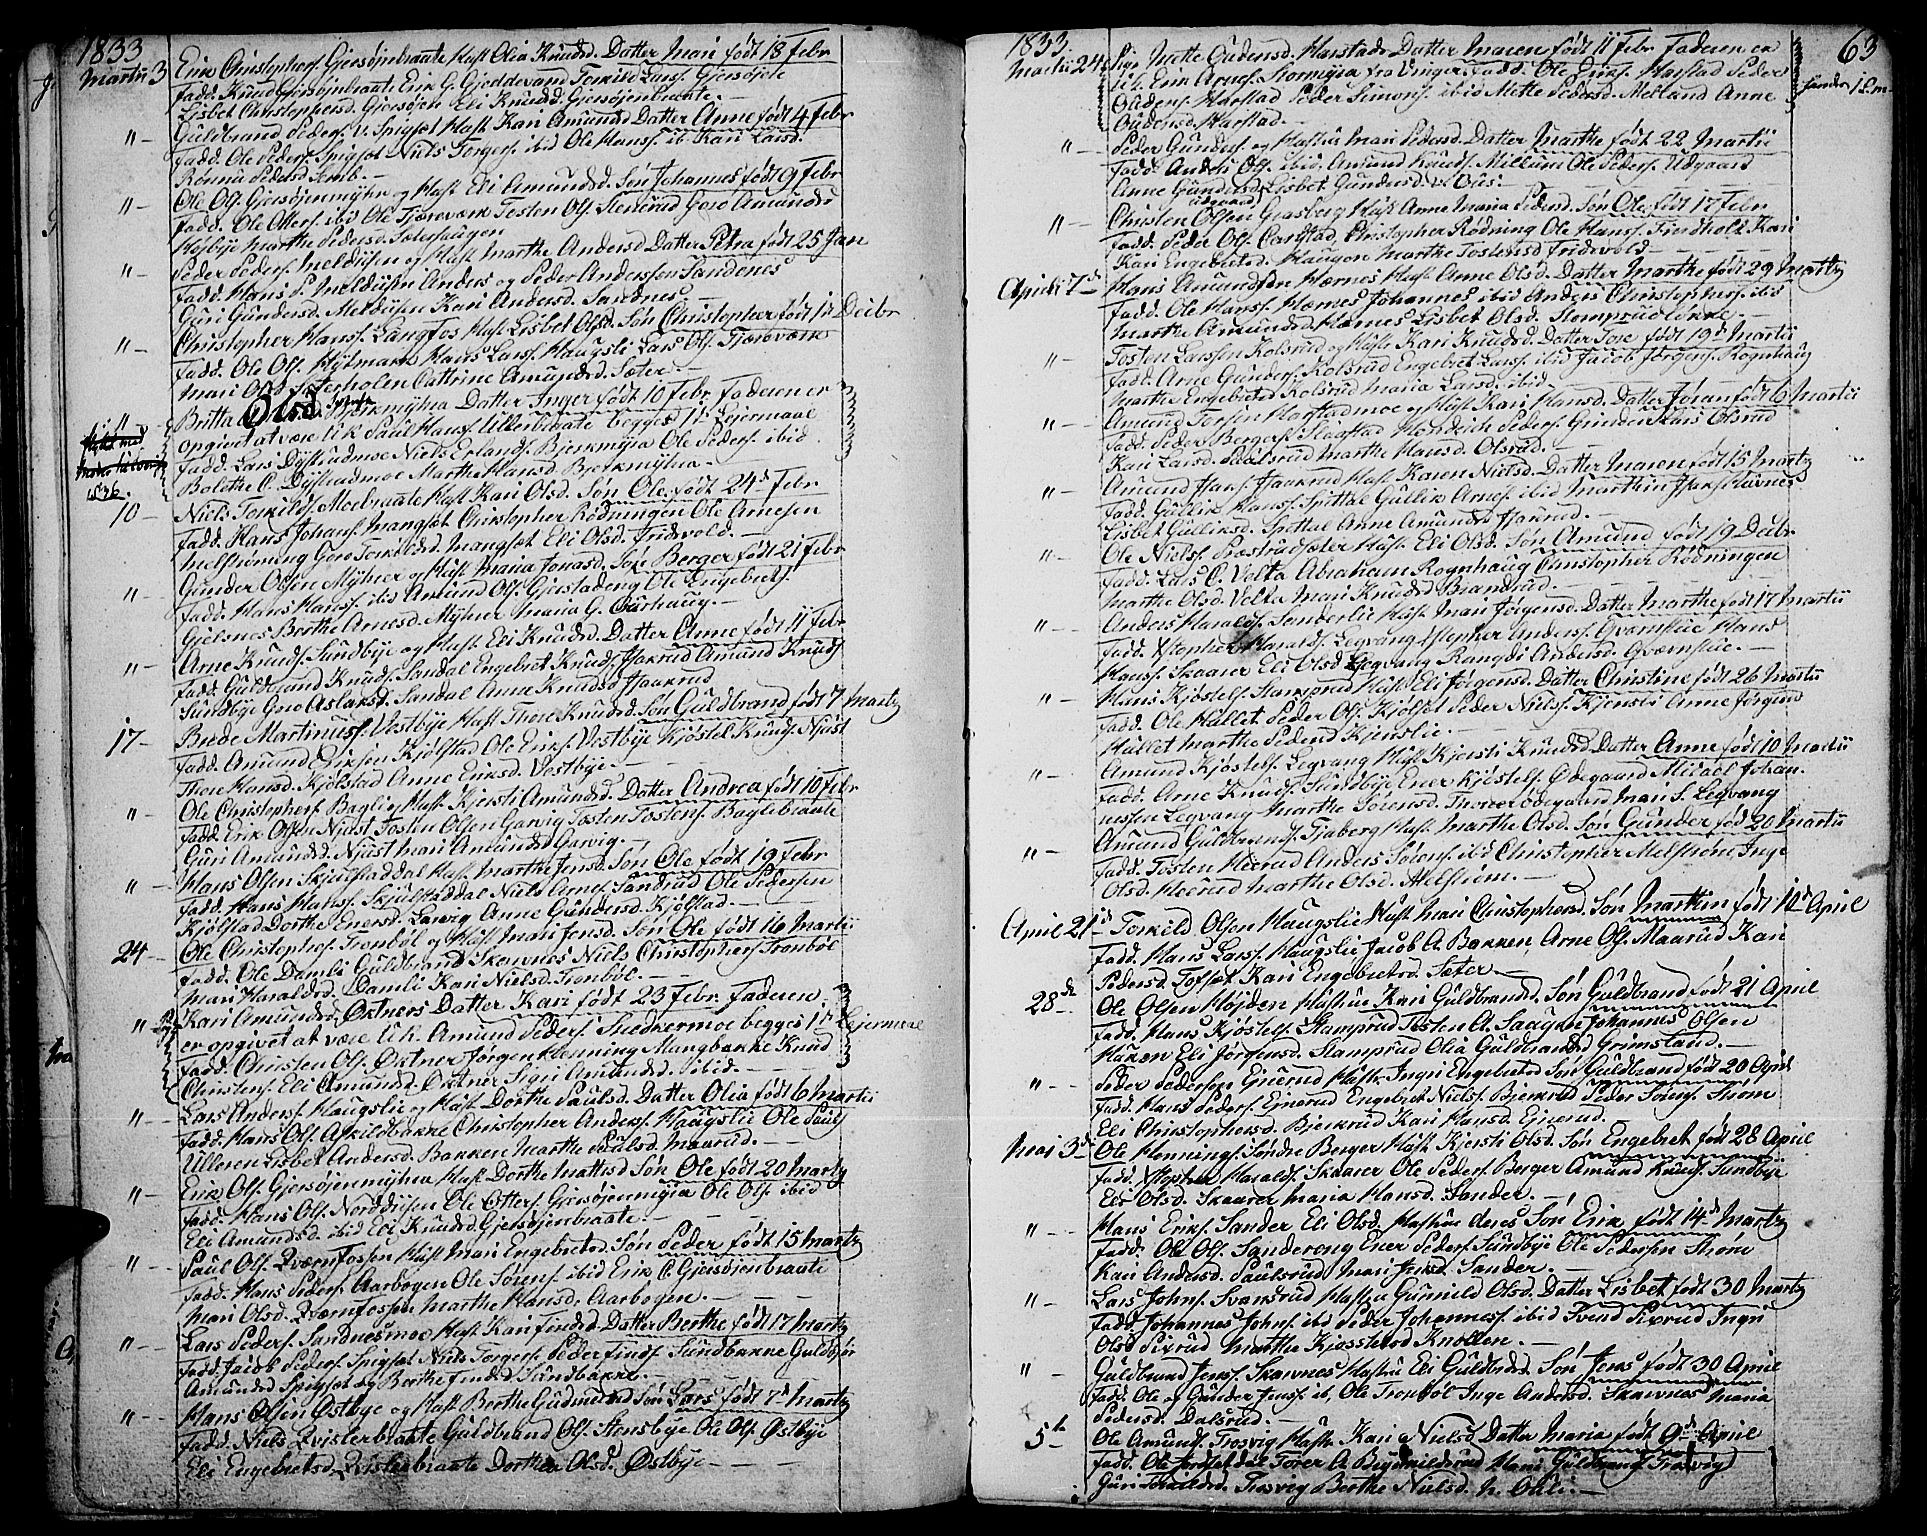 1833
Martii 3 Erik Christophers. Gjersøjenbraate Hust. Olia Knudsd. Datter Mari født 18 Febr
Fadd. Knud Gjersøjenbraate Erik G. Gjeddevand Torkild Lars. Gjersøjete
Lisbet Christophersd. Gjersøjen Eli Knudsd. Gjersøjenbraate.
" Guldbrand Peders. v. Spigset Hust. Kari Amundsd Datter Anne født 4 Febr
Fadd. Ole Peders. Spigset Niels Torgers. ibid Ole Hans. ib. Kari Larsd.
Rønnu Pedersd
" Ole Ols. Gjersøjenmyhra og Hust. Eli Amundsd. Søn Johannes født 9 Febr
Fadd. Ole Otters. ibid Ole Fjereværk Tosten Ols. Stenerud Goro Amundsd
Marthe Pedersd. Seterhaugen
" Peder Peders. Meldusen og Hust. Marthe Andersd Datter Petra født 25 Jan
Fadd. Hans P. Meldusen Anders og Peder Anderssøn Sandenes
Guri Gundersd. Meldusen Kari Andersd. Sandnes
" Christopher Hans. Langfos Hust. Lisbet Olsd. Søn Christopher født 10 Decbr
Fadd. Ole Ols. Lars. Haugsli Lars Ols. Fjereværk
Mari Olsd Seterholen Cattrine Amundsd. Sæter
" Britta Olsd. Bjerkmyhra Datter Inger født 10 Febr. Faderen er
opgivet at være U.K. Paul Hans. Ullernbraate begges 1ste Lejermaal
Fadd. Lars Dystrudmoe Niels Erlands. Bjerkmyra Ole Peders. ibid
Bolethe C. Dystrudmoe Marthe Hansd. Bjerkmyhra.
10 Niels Torkilds. Moebraate Hust. Kari Olsd. Søn Ole født 24de Febr
Fadd. Hans Johans. Mangset Christopher Rødningen Ole Arnesen
Melstrøm Goro Torkildsd. Mangset Eli Olsd. Fridsvold.
" Gunder Olsen Myhrer og Hust. Maria Jonasd. Søn Berger født 21 Febr
Fadd. Hans Hans. ibid Amund Ols. Gjerstadeng Ole Engebrets.
Gjelsnes Berthe Arnesd. Myhrer Maria G. Gurhaug.
" Arne Knuds. Sundbye og Hust. Eli Knudsd. Datter Anne født 11 Febr
Fadd. Guldbrand Knuds. Sandal Engebret Knuds. Haakrud Amund Knuds
Sundbye Gro Aslaksd. Sandal Anne Knudsd Haakrud
17 Brede Martinuss. Vestbye Hust. Thore Knudsd. Søn Guldbrand født 7 Martz
Fadd. Amund Eriksen Kjølstad Ole Eriks. Vestbye Kjøstel Knuds. Njust
Thore Hansd. Kjølstad Anne Eriksd. Vestbye.
" Ole Christophers. Bagli og Hust. Kjersti Amundsd. Datter Andrea født 10 Febr
Fadd. Erik Olsen Njust Tosten Olsen Garvig Tosten Tostens. Baglebraate
Guri Amundsd. Njust Mari Amundsd Garvig.
" Hans Olsen Skjulstaddal Hust. Marthe Jensd. Søn Ole født 19 Febr
Fadd. Hans Hans. Skjulstaddal Niels Arnes. Sandrud Ole Pedersen
Kjølstad Dorthe Enersd. Garvig Anne Gundersd. Kjølstad.
24 Ole Christophers. Tronbøl og Hust. Mari Jensd. Søn Ole født 16 Martii
Fadd. Ole Damli Guldbrand Skavnes Niels Christophers Tronbøl
Mari Haraldsd. Damli Kari Nielsd. Tronbøl.
" Kari Amundsd. Øktners Datter Kari født 23 Febr. Faderen
er opgivet at være U.K. Amund Peders. Snedkermoe begges 1ste Lejermaal
Fadd. Christen Ols. Øktner Jørgen Henning Mangbakke Knud
Christens. Eli Amundsd. Øktner Sigri Amundsd. ibid.
" Lars Anders. Haugslie og Hust. Dorthe Paulsd. Datter Olia født 6 Martii
Fadd. Hans Ols. Askildbakke Christopher Anders. Haugslie Ole Pauls
Ulleren Lisbet Andersd. Bakken Marthe Paulsd. Maarud.
" Erik Ols. Gjersøjenmyhra Hust. Dorthe Mattisd Søn Ole født 20 Martz
Fadd. Hans Ols. Norddusen Ole Otters. Gjersøjenmyra Ole Ols. ibid
Eli Amundsd. ibid Eli Knudsd Gjersøjenbraate.
" Paul Ols. Qværnfossen Hust. Mari Engebretsd. Søn Peder født 15 Martz
Fadd. Hans Peders. Aarbogen Ole Sørens. ibid Erik C. Gjersøjenbraate
Mari Olsd. Qværnfossen Marthe Hansd. Aarbogen.
" Lars Peders. Sandnesmoe Hust. Kari Findsd. Datter Berthe født 17 Martz
Fadd. Jacob Peders. Spigset Niels Torgers. Peder Finds. Sundbakke Guldbjør
Amundsd Spigset og Berthe Findsd Sundbakke.
" Hans Olsen Østbye og Hust. Berthe Gudmundsd Søn Lars født 7de Martz
Fadd. Niels Qvisterbraate Guldbrand Ols. Stensbye Ole Ols Østbye
Eli Engebretsd. Qvisterbraate Dorthea Olsd. Østbye
1833. 63
Martii 24 Pige Mette Gudensd. Harstads Datter Maren født 11 Febr Faderen er
U.K. Erik Arnes. Stormyra fra Vinger. Fadd. Ole Eriks. Harstad Peder
Gudens. Harstad Peder Simons. ibid Mette Pedersd. Melland Anne
Gudensd. Harstad
" Peder Gunders. og Hustrue Mari Pedersd. Datter Marthe født 22 Martii
Fadd. Anders Og. ibid Amund Knuds. Millum Ole Peders. Udgaard
Anne Gundersd Lisbet Gundersd.
" Christen Olsen Grasberg Hust. Anne Maria Pedersd. Søn Ole født 17 Febr
Fadd. Peder Ols. Carlstad Christopher Rødning Ole Hans. Trindholt Kari
Kari Engebretsd. Haugen Marthe Tostensd Fridsvold
Aprili 7de Hans Amundsen Hærnes Hust. Anne Olsd. Datter Marthe født 29 Martz
Fadd. Ole Hans. Hærnes Johannes ibid Anders Christophers. ibid
Marthe Amundsd Hærnes Lisbet Olsd. Stomprudløkke.
" Tosten Larssen Kolsrud og Hust. Kari Knudsd. Datter Tore født 19de Martii
Fadd. Arne Gunders. Kolsrud Engebret Lars. ibid Jacob Jørgens. Rognhaug
Marthe Engebretsd Kolsrud Maria Larsd. ibid.
" Amund Torsen Harstadmoe og Hust. Kari Hansd. Datter Jøran født 6 Martii
Fadd. Peder Bergers. Slaastad Hendrich Peders. Grinder Lars Olsrud
Kari Larsd. Paalsrud Marthe Hansd. Olsrud.
" Amund Haakrud Hust. Karen Nielsd. Datter Maren født 15 Martz
Fadd. Gullik Hans. Spittal Gullik Arnes. ibid Marthin
Lisbet Gulliksd. Spettal Anne Amundsd Haakrud.
" Ole Niels. Præstrudsæter Hust. Eli Olsd. Søn Amund født 19 Decbr
Fadd. Lars C. Velta Abraham Rognhaug Christopher Rødningen
Marthe Olsd. Velta Mari Knudsd Brandrud.
" Anders Haralds. Sonderlie Hust. Mari Jørgensd. Datter Marthe født 17 Martii
Fadd. Xstopher Haralds. Legvang Xstopher Anders. Qværnstue Hans
Hans. Skaarer Eli Olsd Legvang Rangdi Andersd. Qværnstue.
" Hans Kjøstels. Stamprud Hust. Eli Jørgensd. Datter Christine født 26 Martii
Fadd. Ole Hullet Peder Ols. Kjølset Peder Niels. Kjensli Anne Jørgensd
Hullet Marthe Pedersd Kjenslie.
" Amund Kjøstels. Legvang Hust. Kjersti Knudsd. Datter Anne født 10 Martii
Fadd. Arne Knuds. Sundbye Ener Kjøstels. Ødegaard Michael Johan-
nessen Legvang Marthe Sørensd. Ødegaard Mari S. Legvang
" Amund Guldbrands. Tjaberg Hust. Marthe Olsd. Søn Gunder født 20 Martii
Fadd. Tosten Moerud Anders Sørens. ibid Christopher Melstrøm, Inge
Olsd. Moerud Marthe Olsd. Melstrøm.
April 21de Torkild Olsen Haugslie Hust. Mari Christophersd. Søn Marthin født 10de April
Fadd. Hans Lars. Haugslie Jacob A. Bakken, Arne Ols. Maarud Kari
Pedersd. Tofset Kari Engebretsd. Sæter
28de Ole Olsen Højden Hustrue Kari Guldbrandsd. Søn Guldbrand født 21 April
Fadd. Hans Kjøstels. Stamprud Tosten A. Haugen Johannes Olsen
Hukon Eli Jørgensd. Stamprud Olia Guldbrandsd Grimstand.
" Peder Pedersen Ejnerud Hust. Ingri Engebretsd Søn Guldbrand født 20 April
Fadd. Hans Peders. Ejnerud Engebret Niels. Bjerkrud Peder Sørens. Strøm
Eli Christophersd. Bjerkrud Kari Hansd. Ejnerud.
Mai 3de Ole Hennings. Søndre Berger Hust. Kjersti Olsd. Søn Engebret født 28 April
Fadd. Xstopher Haralds. Skaarer Ole Peders. Berger Amund Knuds. Sundbye
Eli Olsd. Skaarer Maria Hansd. Sander.
" Hans Eriks. Sander Eli Olsd. Hustrue deres Søn Erik født 14de Martz
Fadd. Ole Ols. Sandereng Ener Peders. Sundbye Ole Pedersen Strøm
Kari Andersd. Paulsrud Mari Jensd. Sander.
" Lars Johns. Svansrud Hustrue Gunnild Olsd. Datter Lisbet født 30 Martz
Fadd. Johannes Johns. ibid Peder Johannes. ibid Svend Sixrud Ingri
Olsd Sixrud Marthe Kjøstelsd Knollen.
" Guldbrand Jens. Skavnes Hustrue Eli Guldbrdsd. Søn Jens født 30 April
Fadd. Ole og Gunder Jens. ib, Ole Tronbøl Inge Andersd. Skavnes Maria
Pedersd. Dalsrud.
5te Ole Amunds. Trosvig Hust. Kari Nielsd Datter Maria født 9de April
Fadd. Ole Torer A. Hans Guldbrands Trosvig
Guri Torkildsd. Trosvig Berthe Nielsd. n. Ouli.